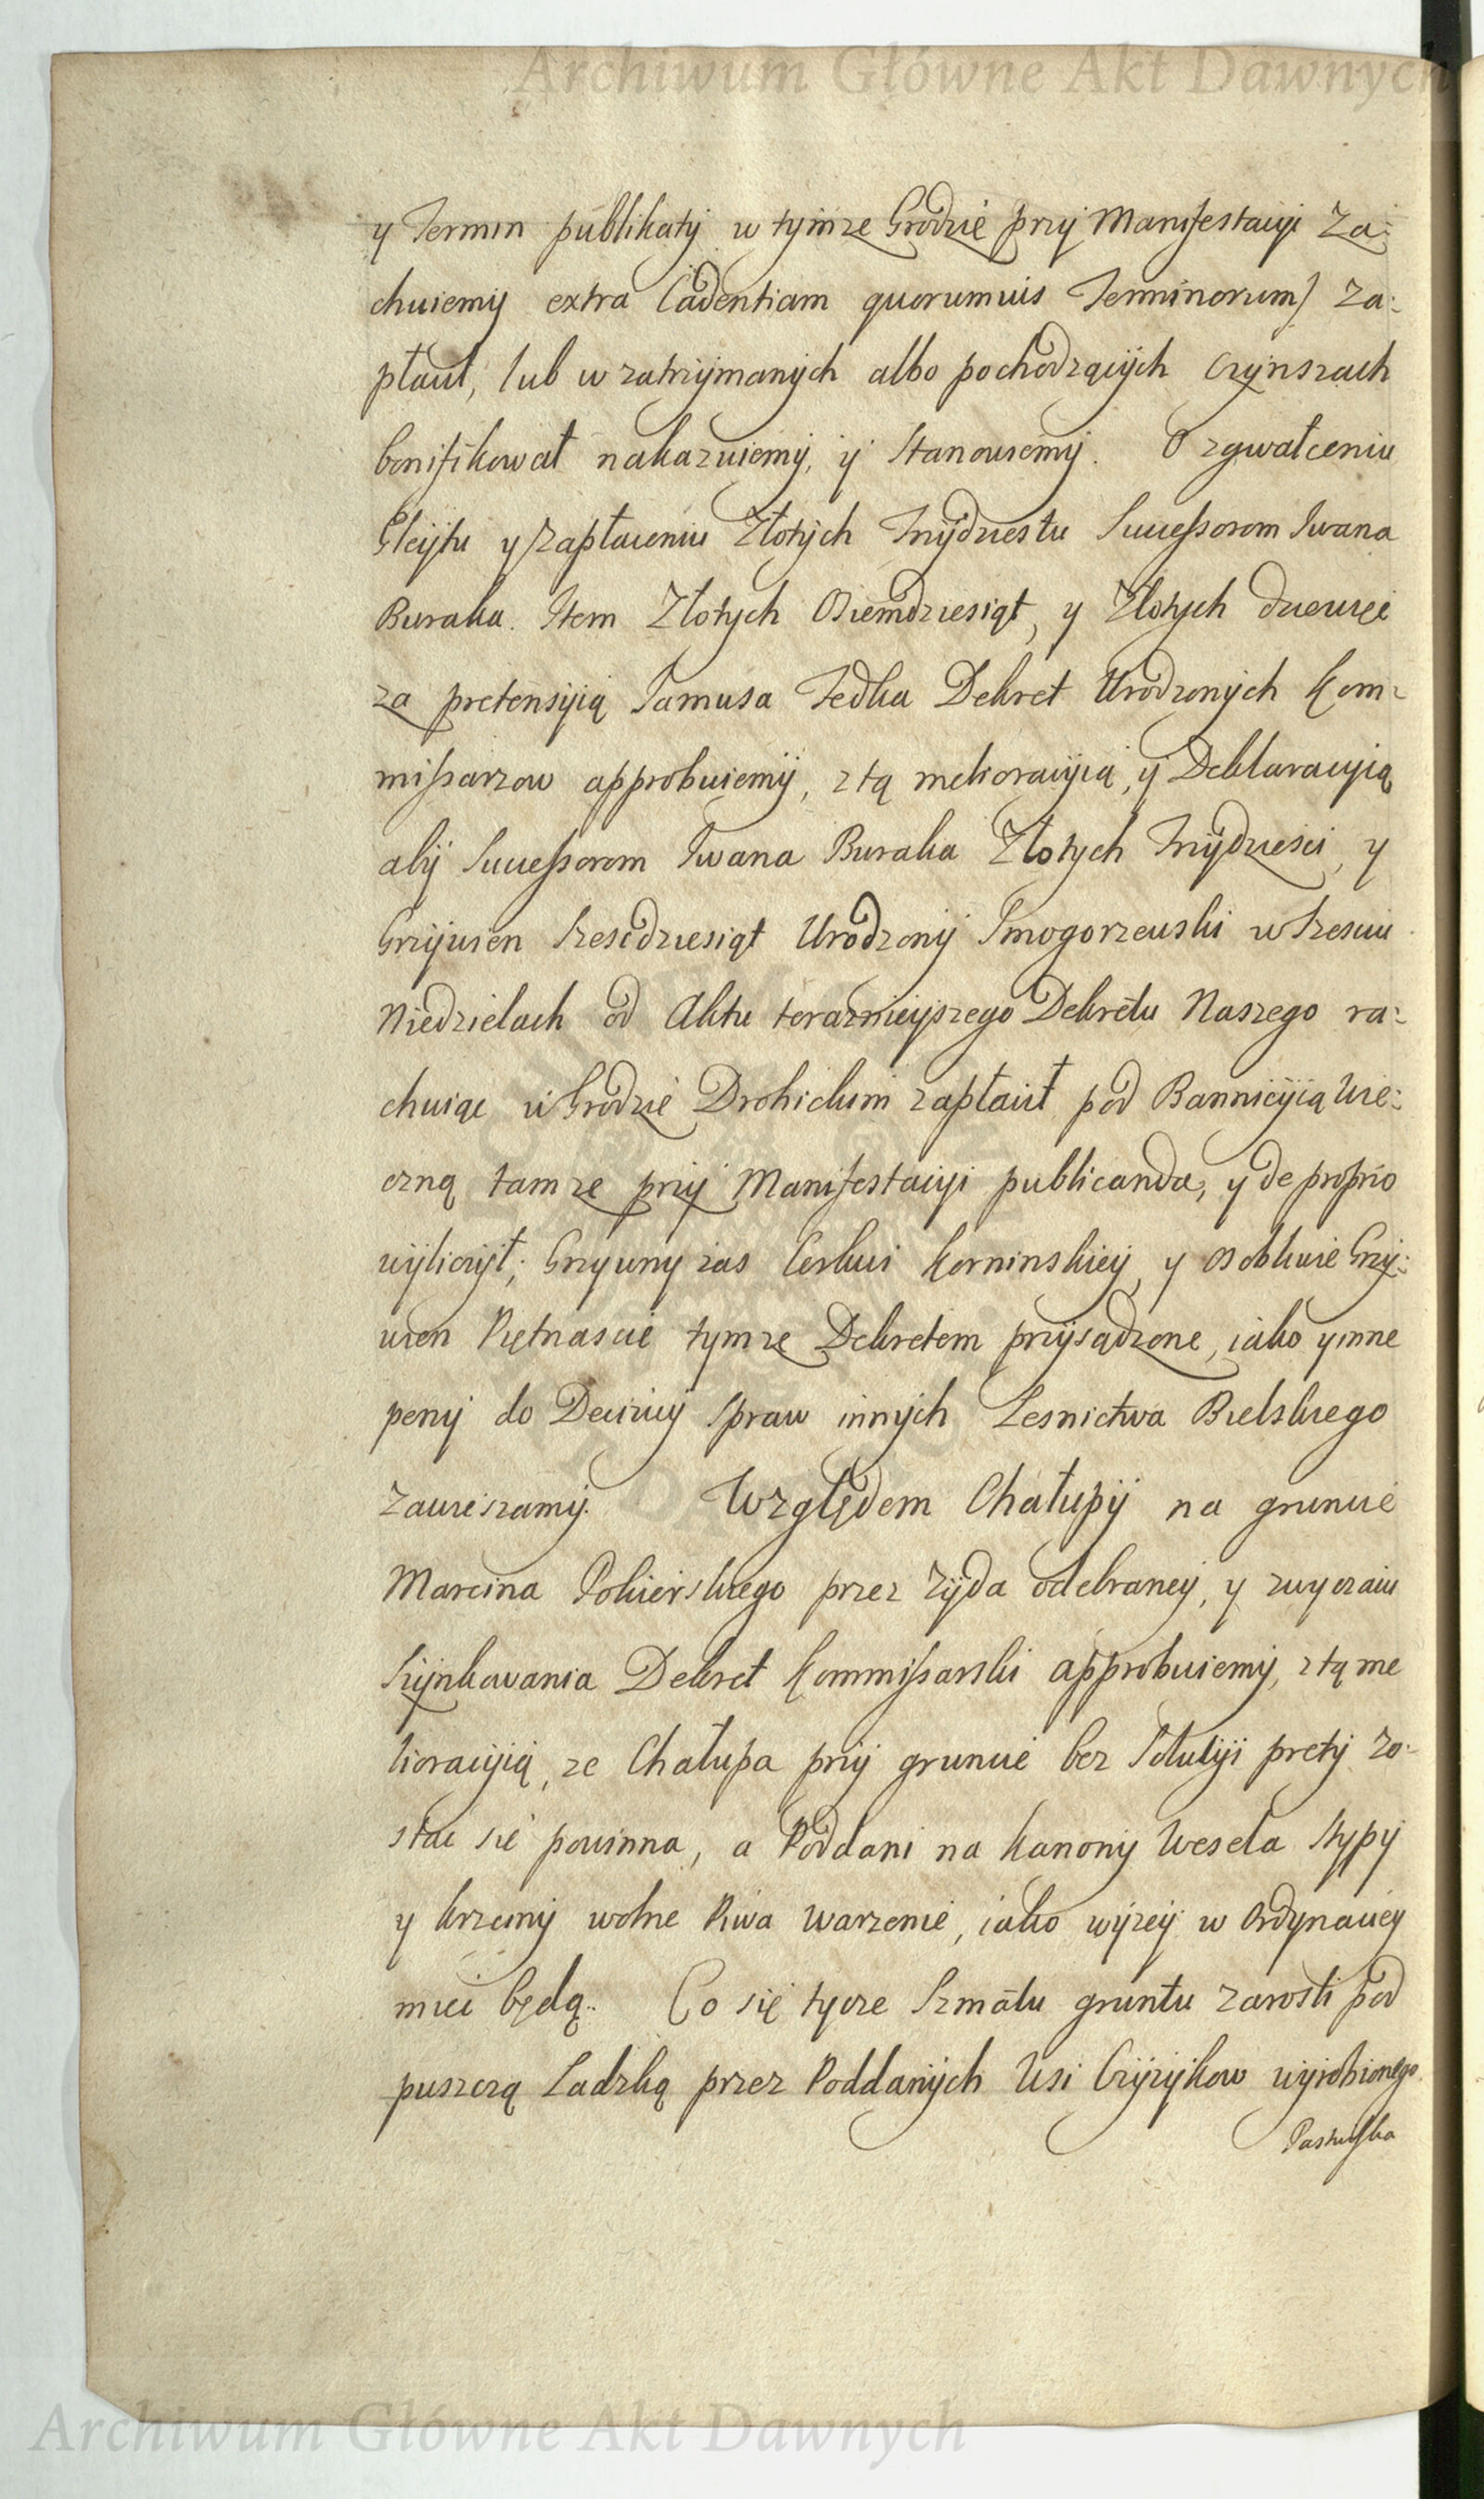 Archiwum Główne Akt Dawnych
y Termin publikaty w tymze Grodzie przy Manifestacyi Za-
chuiemy extra Cadentiam quorumvis Terminorum) za-
płacił, lub w zatrzymanych albo pochodzących Czynszach
bonifikował nakazuiemy, y Stanowiemy. O zgwałceniu
Gleytu y zapłaceniu Złotych Trzydziestu Successorom Iwana
Buraka. Item Złotych Osiemdziesiąt, y Złotych dziewięc
za pretensyią Jamusa Fedka Dekret Urodzonych Kom-
missarzow approbuiemy, z tą melioracyią, y Deklaracyią
aby Successorom Iwana Buraka Złotych Trzydziesci, y
Grzywien Szescdziesiąt Urodzony Smogorzewski w Szesciu
Niedzielach od Aktu terazniejszego Dekretu Naszego ra-
chuiąc w Grodzie Drohickim zapłacił pod Bannicyią Wie-
czną tamze przy Manifestacyi publicanda, y de proprio
wyliczył; Grzywny zas Cerkwi Korninskiey, y osobliwie Grzy-
wien Piętnascie tymze Dekretem przysądzone, iako y inne
peny do Decizyi Spraw innych Lesnictwa Bielskiego
zawieszamy. Względem Chałupy na gruncie
Marcina Pokierskiego przez Zyda odebraney, y zwyczaiu
Szynkowania Dekret Kommissarski approbuiemy, z tą me
lioracyią, ze Chałupa przy gruncie bez Solucyi prety zo-
stac sie powinna, a Poddani na Kanony Wesela Stypy
y krzciny wolne Piwa warzenie, iako wyzey w Ordynacyey
miec będą. Co się tycze Szmatu gruntu zarosli pod
puszczą Ladzką przez Poddanych Wsi Czyzykow wyrobionego
Pastwiska
Archiwum Główne Akt Dawnych